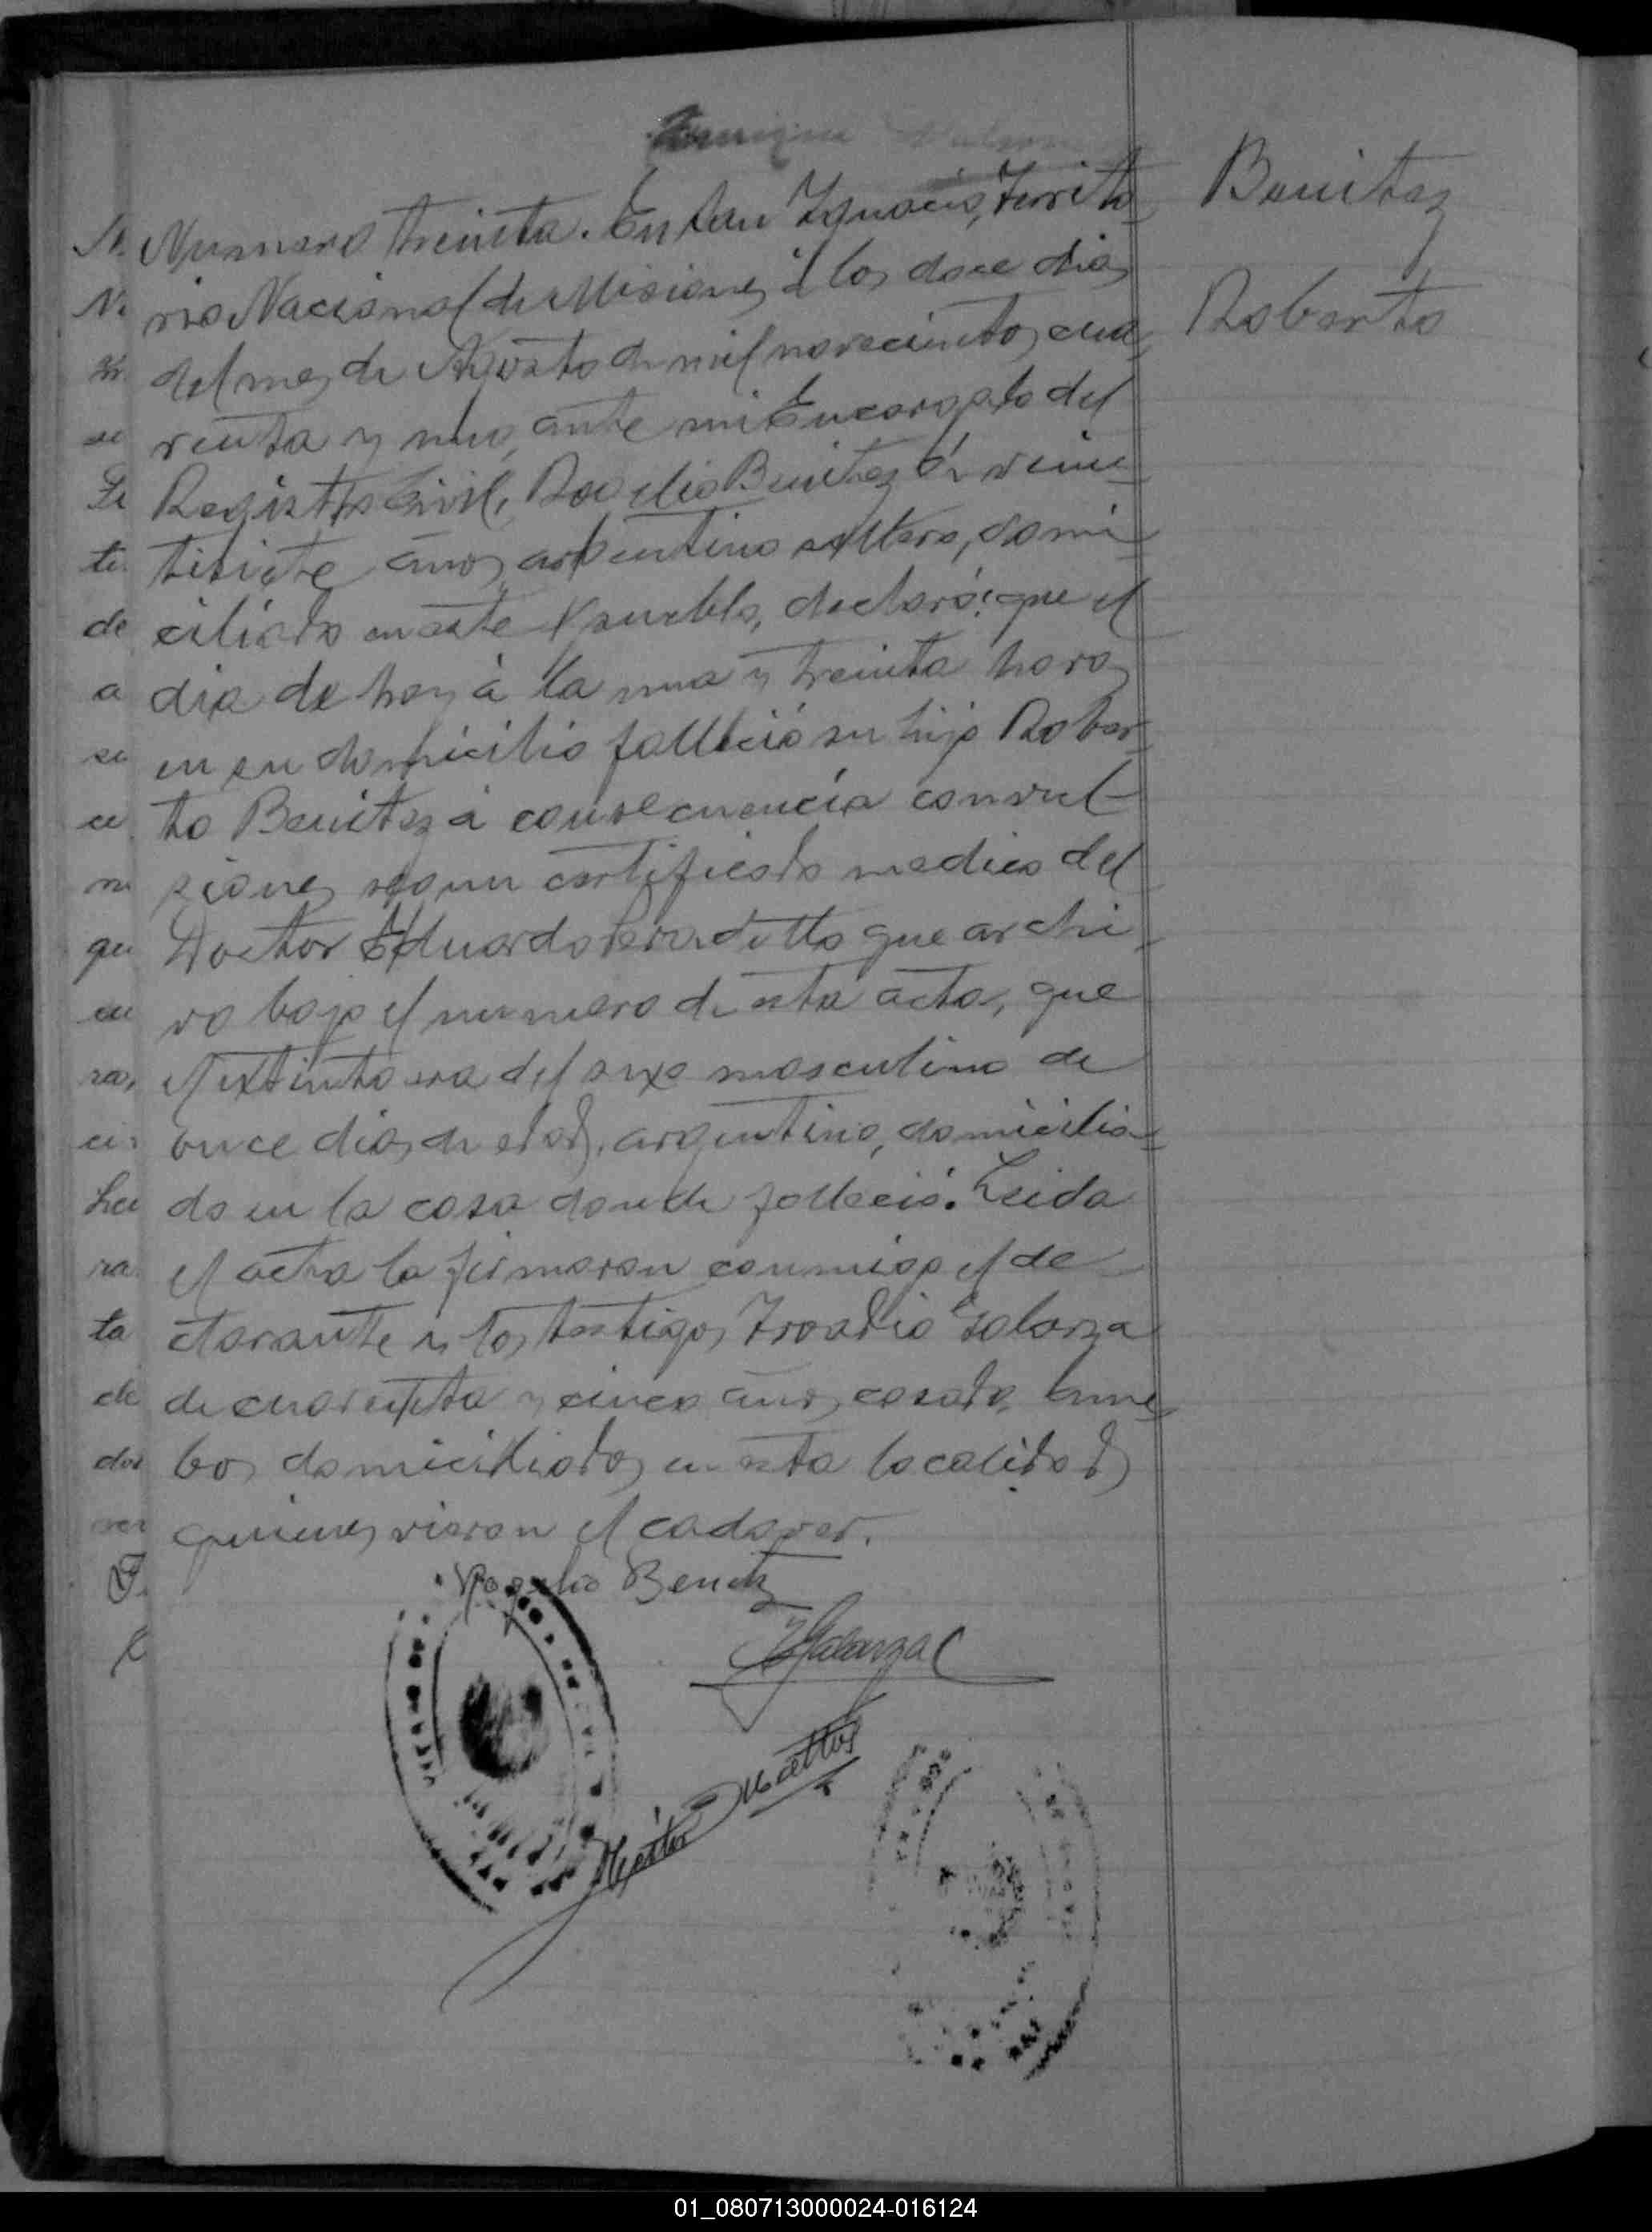 Benitez
Roberto
Numero treinta. En San Ignacio, Territo
rio Nacional de Misiones á los doce dias
del mes de Agosto de mil novecientos cua
renta y uno, ante mi Encargado del
Registro Civil, Rogelio Benitez de vein
tisiete años, argentino soltero, domi
ciliado en este pueblo, declaró: que el
dia de hoy á la una y treinta horas
en su domicilio falleció su hijo Rober
to Benitez á consecuencia convul
siones segun certificado medico del
Doctor Eduardo que archi
vo bajo el numero de esta acta, que
el extinto era del sexo masculino de
once dias de edad, argentino, domicilia
do en la casa donde falleció. Leida
el acta la firmaron conmigo el de
clarante y los testigos Galarza
de cuarenta y cinco años, casado, am
bos domiciliados en esta localidad
quienes vieron el cadaver.
Rogelio Benitz
Galarza
Mattos
01_080713000024-016124